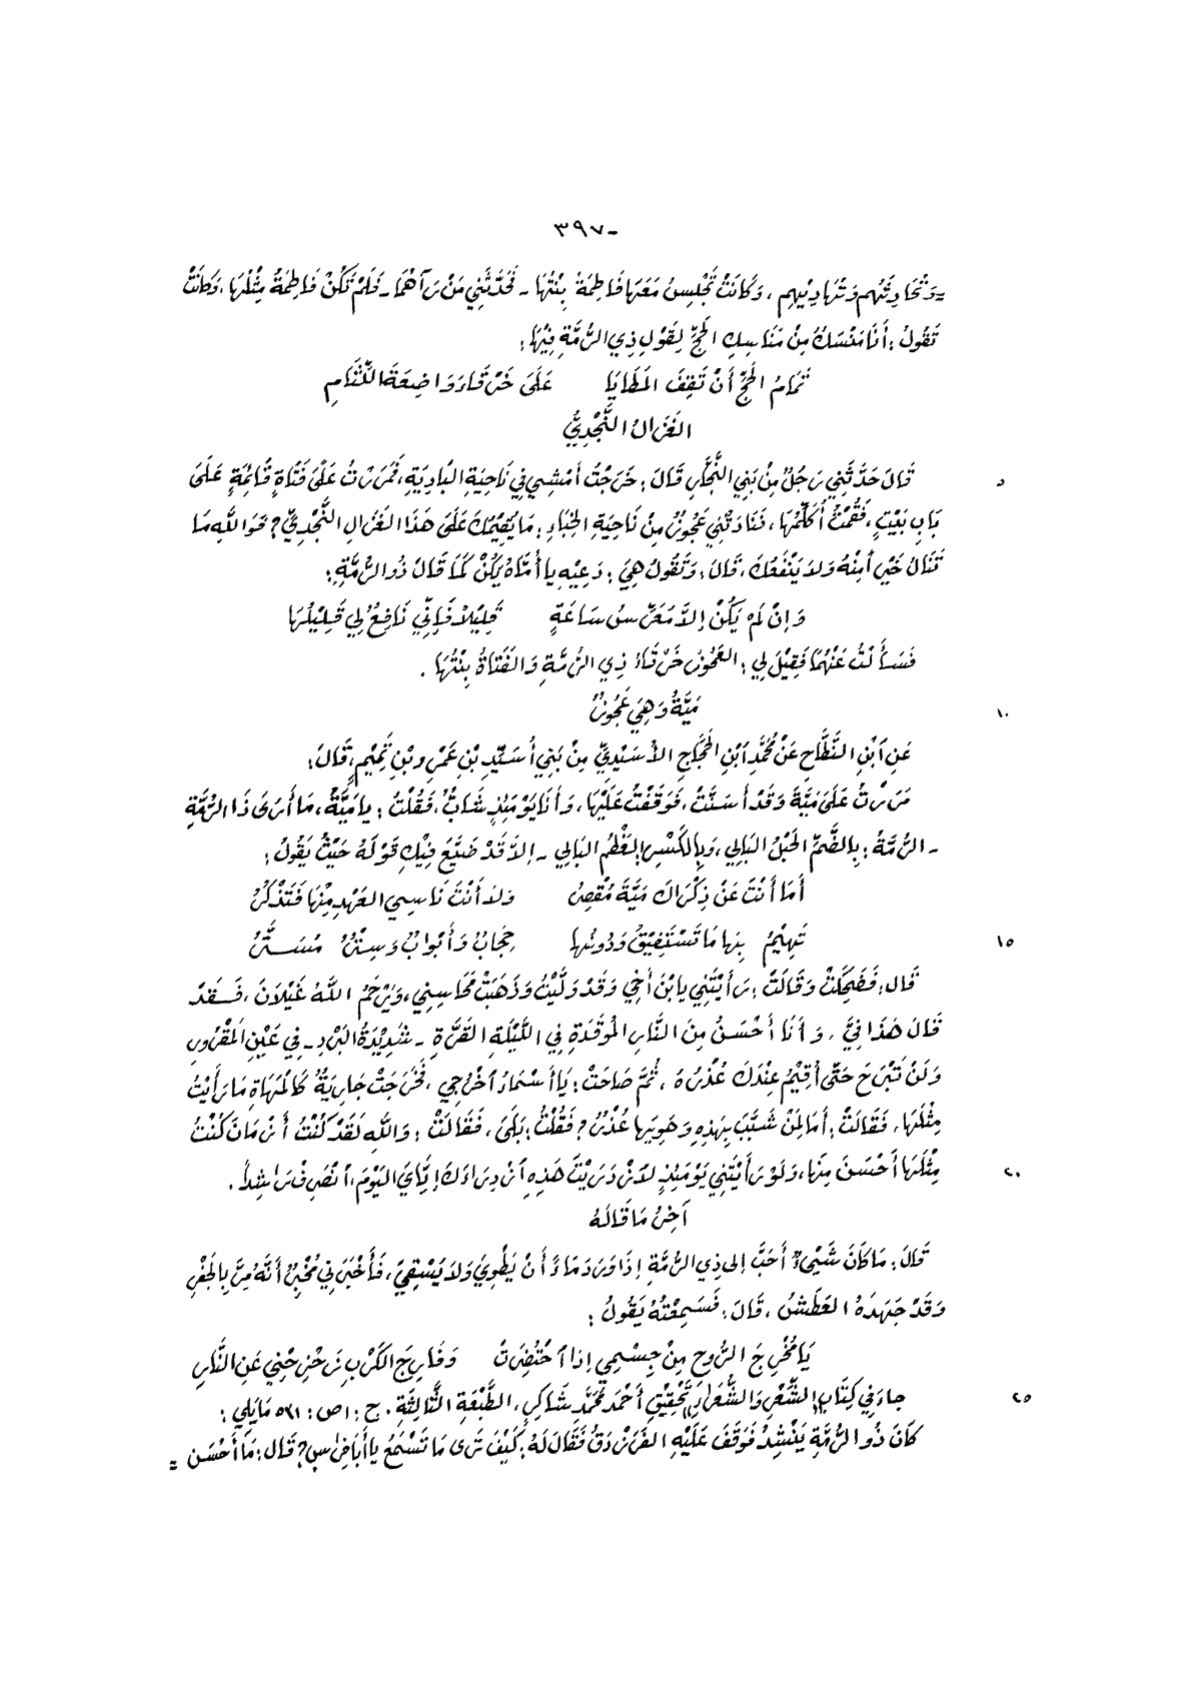 -٣٩٧
=وَتُحَادِثُهُم وَتُهَادِيْهِم ، وَكَانَتْ تَجْلِسُ مَعَهَا فَاطِمَةُ بِنْتُهَا - فَحَدَّثَنِي مَنْ رَآهُمَا - فَلَمْ تَكُنْ فَاطِمَةُ مِثْلَهَا ، وَكَانَتْ
تَقُولُ : أَنَا مَنْسَكٌ مِنْ مَنَاسِكِ الحَجِّ لِقَوْلِ ذِي الرُّمَّةِ فِيْهَا :
تَمَامُ الحَجِّ أَنْ تَقِفَ المَطَايَا عَلَى خَرْقَاءَ وَاضِعَةَ اللِّثَامِ
الغَزَالُ النَّجْدِيُّ
٥ قَالَ حَدَّثَنِي رَجُلٌ مِنْ بَنِي النَّجَّارِ قَالَ : خَرَجْتُ أَمْشِي فِي نَاحِيَةِ البَادِيَةِ ، فَمَرَرْتُ عَلَى فَتَاةٍ قَائِمَةٍ عَلَى
بَابِ بَيْتٍ ، فَقُمْتُ أُكَلِّمُهَا ، فَنَادَتْنِي عَجُوزٌ مِنْ نَاحِيَةِ الخِبَاءِ : مَا يُقِيْمُكَ عَلَى هَذَا الغَزَالِ النَّجْدِيِّ ؟ فَوَاللَّهِ مَا
تَنَالُ خَيْرًا مِنْهُ وَلاَ يَنْفَعُكَ ، قَالَ : وَتَقُولُ هِيَ : دَعِيْهِ يَا أُمَّاهُ يَكُنْ كَمَا قَالَ ذُو الرُّمَّةِ :
وَإِنْ لَمْ يَكُنْ إِلاَّ مُعَرَّسُ سَاعَةٍ قَلِيْلاً فَإِنِّي نَافِعٌ لِي قَلِيْلُهَا
فَسَأَلْتُ عَنْهُمَا فَقِيْلَ لِي : العَجُوزُ خَرْقَاءُ ذِي الرُّمَّةِ وَالفَتَاةُ بِنْتُهَا .
١٠ مَيَّةُ وَهِيَ عَجُوزٌ
عَنِ ابْنِ النَّطَّاحِ عَنْ مُحَمَّدِ ابْنِ الحَجَّاجِ الأُسَيْدِيِّ مِنْ بَنِي أُسَيِّدِ بْنِ عَمْرِو بْنِ تَمِيْمٍ ، قَالَ :
مَرَرْتُ عَلَى مَيَّةَ وَقَدْ أَسَنَّتْ ، فَوَقَفْتُ عَلَيْهَا ، وَأَنَا يَوْمَئِذٍ شَابٌّ ، فَقُلْتُ : يَا مَيَّةُ ، مَا أَرَى ذَا الرُّمَّةِ
- الرُّمَّةُ : بِالضَّمِّ الحَبْلُ البَالِي ، وَبِالكَسْرِ العَظْمُ البَالِي - إِلاَّ قَدْ ضَيَّعَ فِيْكِ قَوْلَهُ حَيْثُ يَقُولُ :
أَمَا أَنْتَ عَنْ ذِكْرَاكَ مَيَّةَ مُقْصِرُ وَلاَ أَنْتَ نَاسِي العَهْدِ مِنْهَا فَتَذْكُرُ
١٥ تَهِيْمُ بِهَا مَا تَسْتَفِيْقُ وَدُونَهَا حِجَابٌ وَأَبْوَابٌ وَسِتْرٌ مُسَتَّرُ
قَالَ : فَضَحِكَتْ وَقَالَتْ : رَأَيْتَنِي يَا بْنَ أَخِي وَقَدْ وَلَّيْتُ وَذَهَبَتْ مَحَاسِنِي ، وَيَرْحَمُ اللَّهُ غَيْلاَنَ ، فَلَقَدْ
قَالَ هَذَا فِيَّ ، وَأَنَا أَحْسَنُ مِنَ النَّارِ المُوقَدَةِ فِي اللَّيْلَةِ القَرَّةِ - شَدِيْدَةُ البَرْدِ - فِي عَيْنِ المَقْرُورِ
وَلَنْ تَبْرَحَ حَتَّى أُقِيْمَ عِنْدَكَ عُذْرَهُ ، ثُمَّ صَاحَتْ : يَا أَسْمَاءُ اخْرُجِي ، فَخَرَجَتْ جَارِيَةٌ كَالمَهَاةِ مَا رَأَيْتُ
مِثْلَهَا ، فَقَالَتْ : أَمَا لِمَنْ شَبَّبَ بِهَذِهِ وَهَوِيَهَا عُذْرٌ ؟ فَقُلْتُ : بَلَى ، فَقَالَتْ : وَاللَّهِ لَقَدْ كُنْتُ أَزْمَانَ كُنْتُ
٢٠ مِثْلَهَا أَحْسَنَ مِنْهَا ، وَلَوْ رَأَيْتَنِي يَوْمَئِذٍ لاَزْدَرَيْتَ هَذِهِ ازْدِرَاءَكَ إِيَّايَ اليَوْمَ ، انْصَرِفْ رَاشِداً .
آخِرُ مَا قَالَهُ
قَالَ : مَا كَانَ شَيْءٌ أَحَبَّ إِلى ذِي الرُّمَّةِ إِذَا وَرَدَ مَاءً أَنْ يَطْوِيَ وَلاَ يَسْتَقِيَ ، فَأَخْبَرَنِي مُخْبِرٌ أَنَّهُ مَرَّ بِالجَفْرِ
وَقَدْ جَهَدَهُ العَطَشُ ، قَالَ : فَسَمِعْتُهُ يَقُولُ :
يَا مُخْرِجَ الرُّوحِ مِنْ جِسْمِي إِذَا احْتُضِرَتْ وَفَارِجَ الكَرْبِ زَحْزِحْنِي عَنِ النَّارِ
٢٥ جاءَ فِي كِتَابِ "الشِّعْرِ وَالشُّعَرَاءِ" تَحْقِيْقِ أَحْمَد مُحَمَّد شَاكِرِ ، الطَّبْعَةِ الثَّالِثَةِ . ج : ١ ص : ٥٣١ مَا يَلِي :
كَانَ ذُو الرُّمَّةِ يَنْشِدُ فَوَقَفَ عَلَيْهِ الفَرَزْدَقُ فَقَالَ لَهُ : كَيْفَ تَرَى مَا تَسْمَعُ يَا أَبَا فِرَاسٍ ؟ قَالَ : مَا أَحْسَنَ =